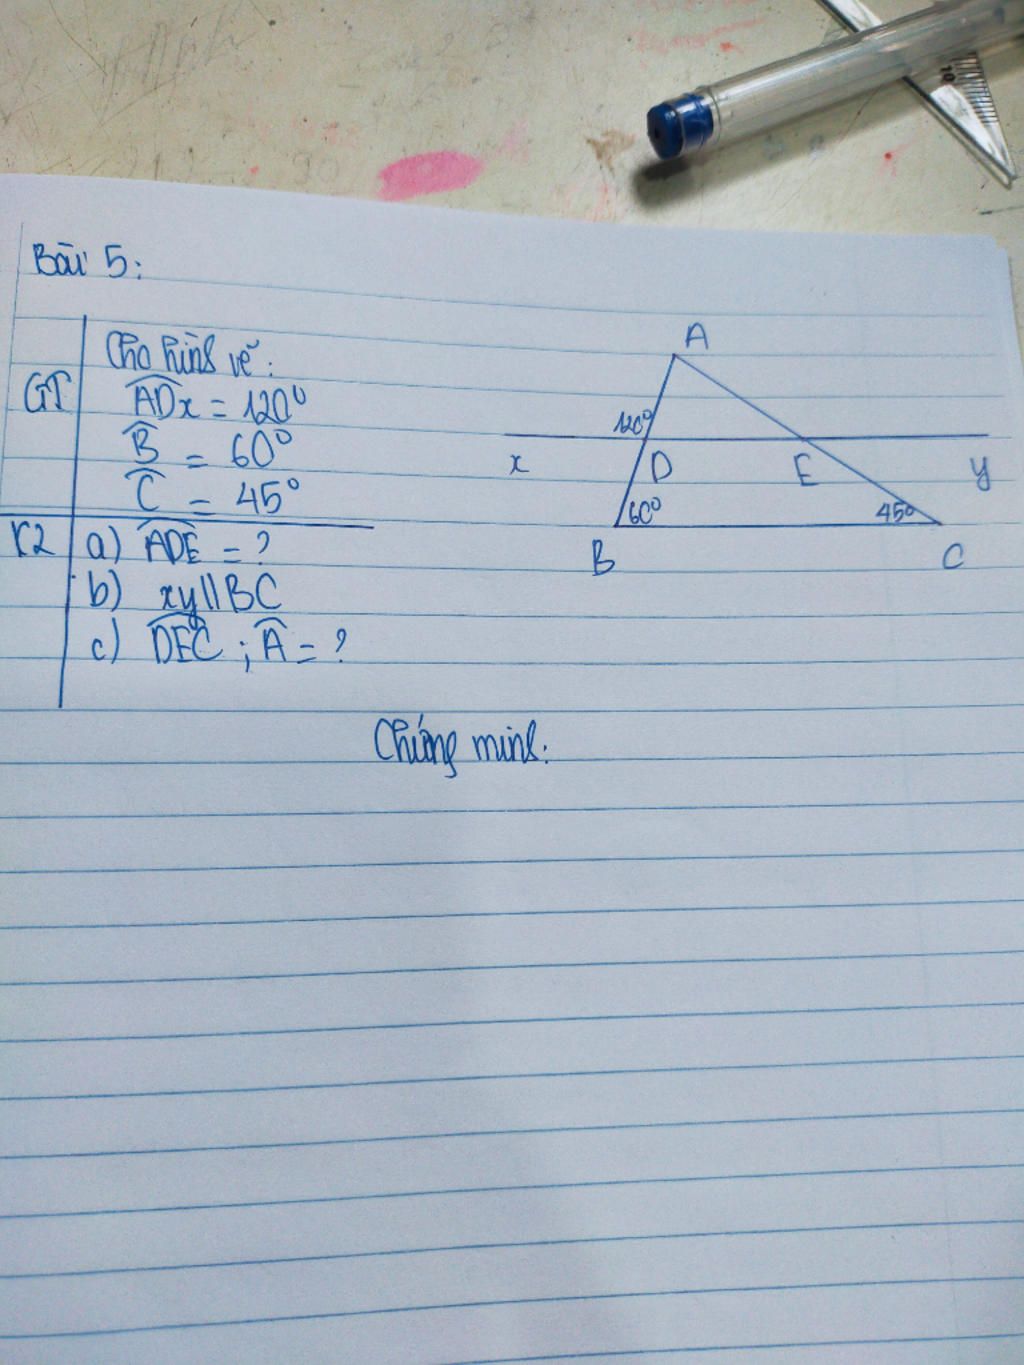 Bài 5:
GT
Cho hình vẽ:
ADx = 120⁰
B = 60⁰
C = 45⁰
K2
a) ADE = ?
b) xy // BC
c) DEC ; A = ?
A
120⁰
x
D
E
y
60⁰
45⁰
B
C
Chứng minh:
10